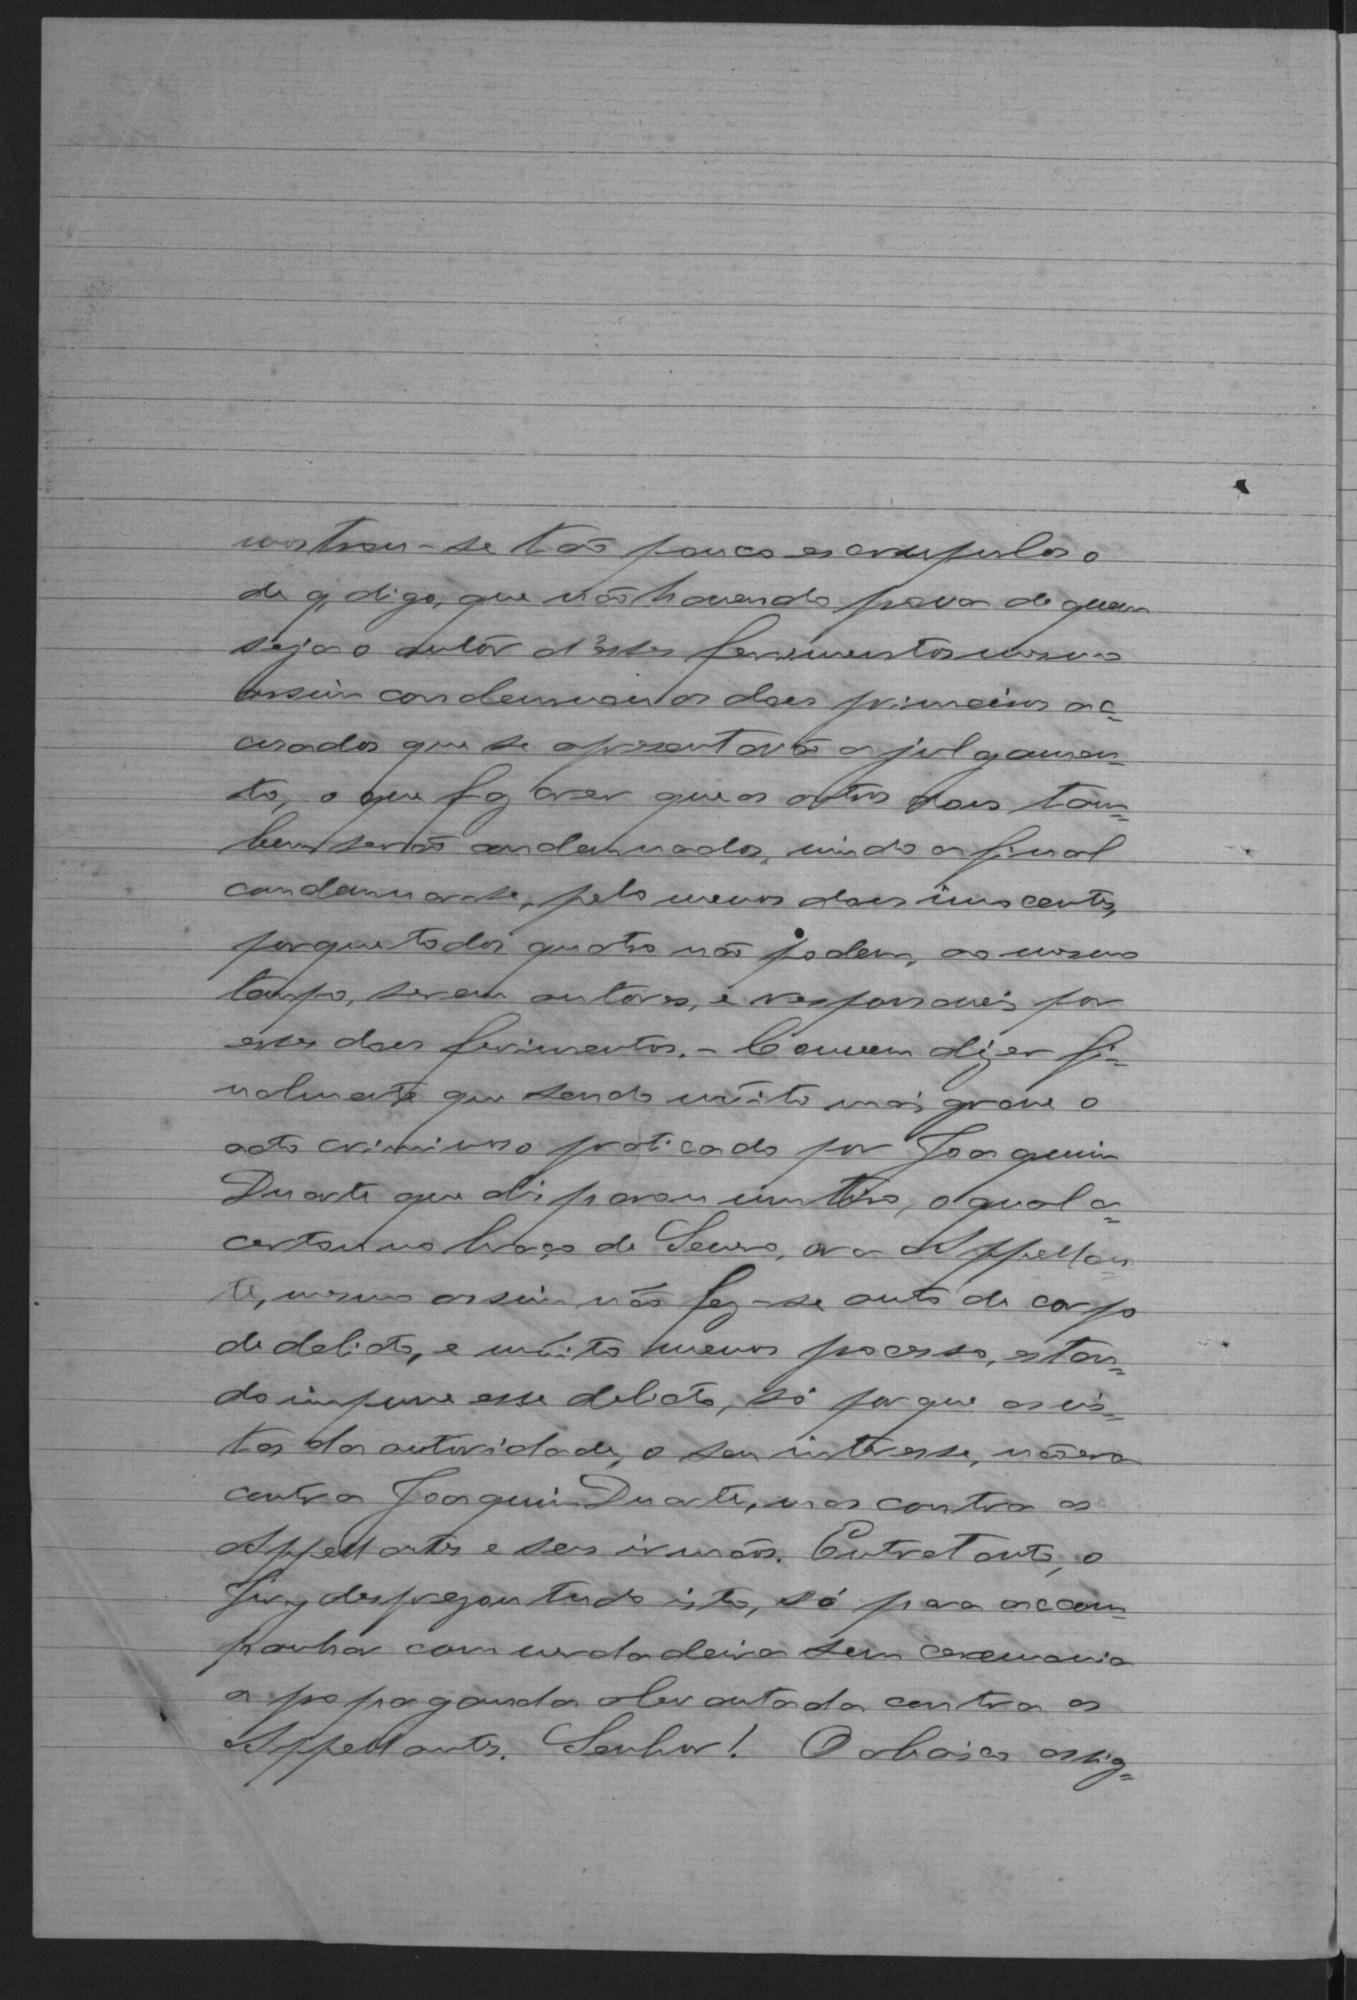 mostrou-se tão pouco escrupuloso
de q, digo, que não havendo prova de quem
seja o autôr d'estes ferimentos mesmo
assim condemnou os dous primeiros ac=
cusados que se apresentarão a julgamen=
to, o que faz crer que os outros dous tam=
bem serão condemnados, vindo a final
condemnar-se, pelo menos dous innocentes,
porque todos quatro não podem, ao mesmo
tempo, serem autores, e responsaveis por
esses dous ferimentos. - Convem dizer fi=
nalmente que sendo muito mais grave o
acto criminoso praticado por Joaquim
Duarte que disparou um tiro, o qual a=
certou no braço de Severo, ora Appellan=
te, mesmo assim não fez-se auto de corpo
de delicto, e muito menos processo, estan=
do impune esse delicto, só porque as vis=
tas da autoridade, o seu interesse, não era
contra Joaquim Duarte, mas contra os
Appellantes e seus irmãos. Entretanto, o
Jury desprezou tudo isto, só para accom=
panhar com verdadeira sem ceremonia
a propaganda alevantada contra os
Appellantes. Senhor! O abaixo assig=